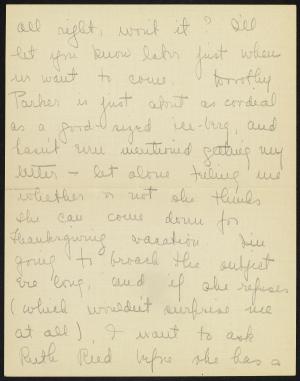 all right, won't it? I'll
let you know later just when
we want to come. Dorothy
Parker is just about as cordial
as a good-sized ice-berg, and
hasn't even mentioned getting my
letter – let alone telling me
whether or not she thinks
she can come down for
Thanksgiving vacation. I'm
going to broach the subject
ere long, and if she refuses
(which wouldn't surprise me
at all), I want to ask
Ruth Reed before she has a